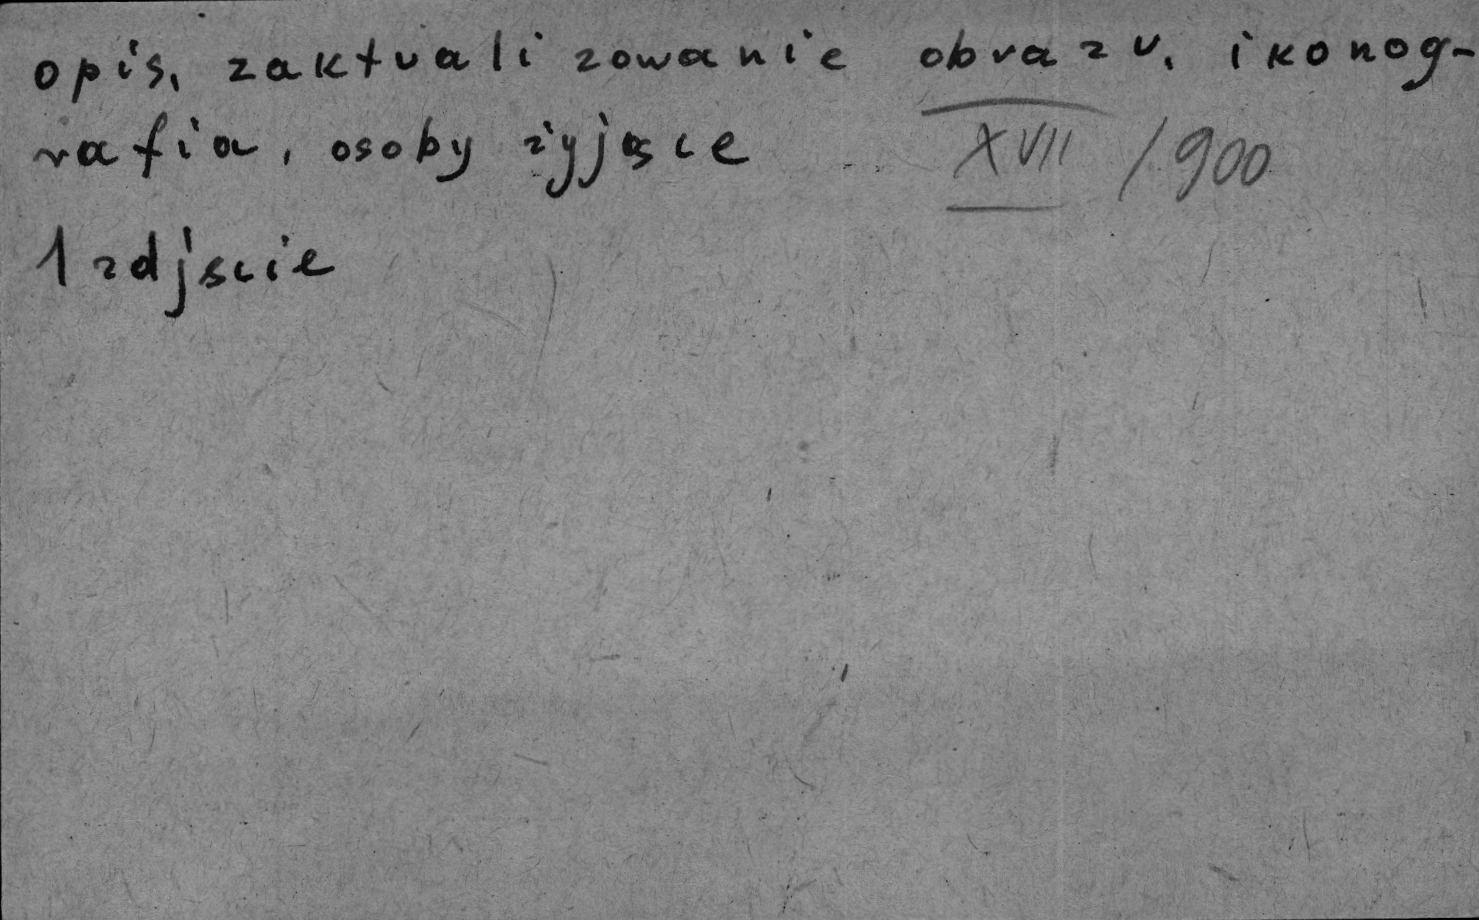 opis, zaktualizowanie obrazu, ikonog-
rafia, osoby żyjące XVII / 900
1 zdjęcie